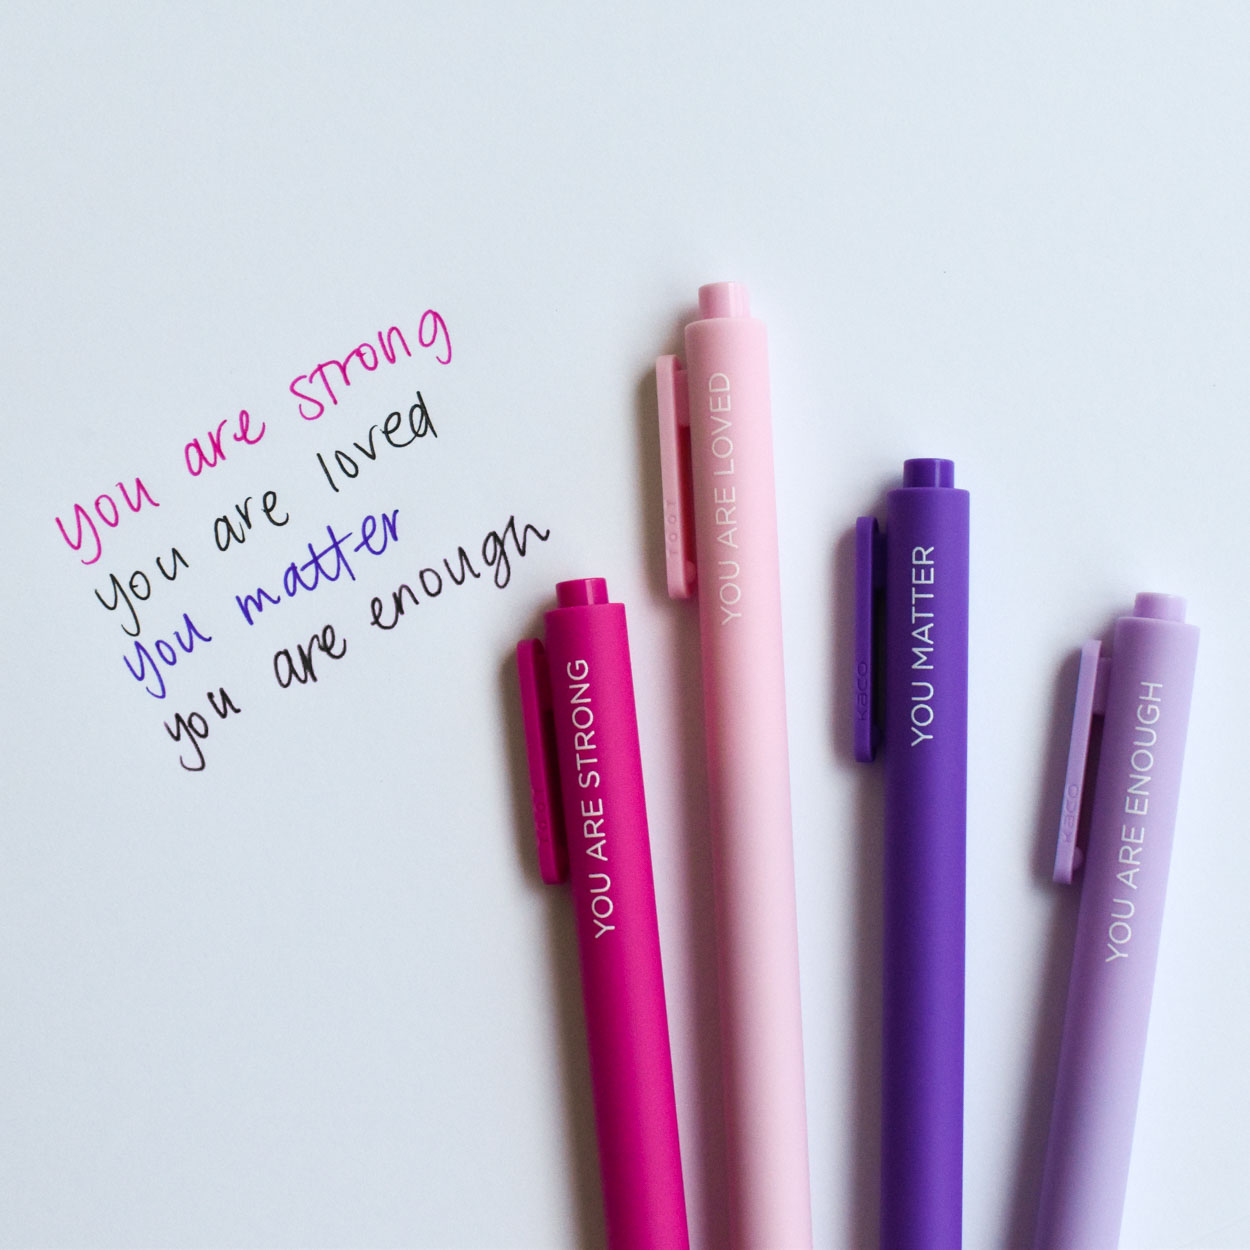 you are strong
you are loved
you matter
you are enough
YOU ARE STRONG
YOU ARE LOVED
YOU MATTER
kaco
YOU ARE ENOUGH
kaco